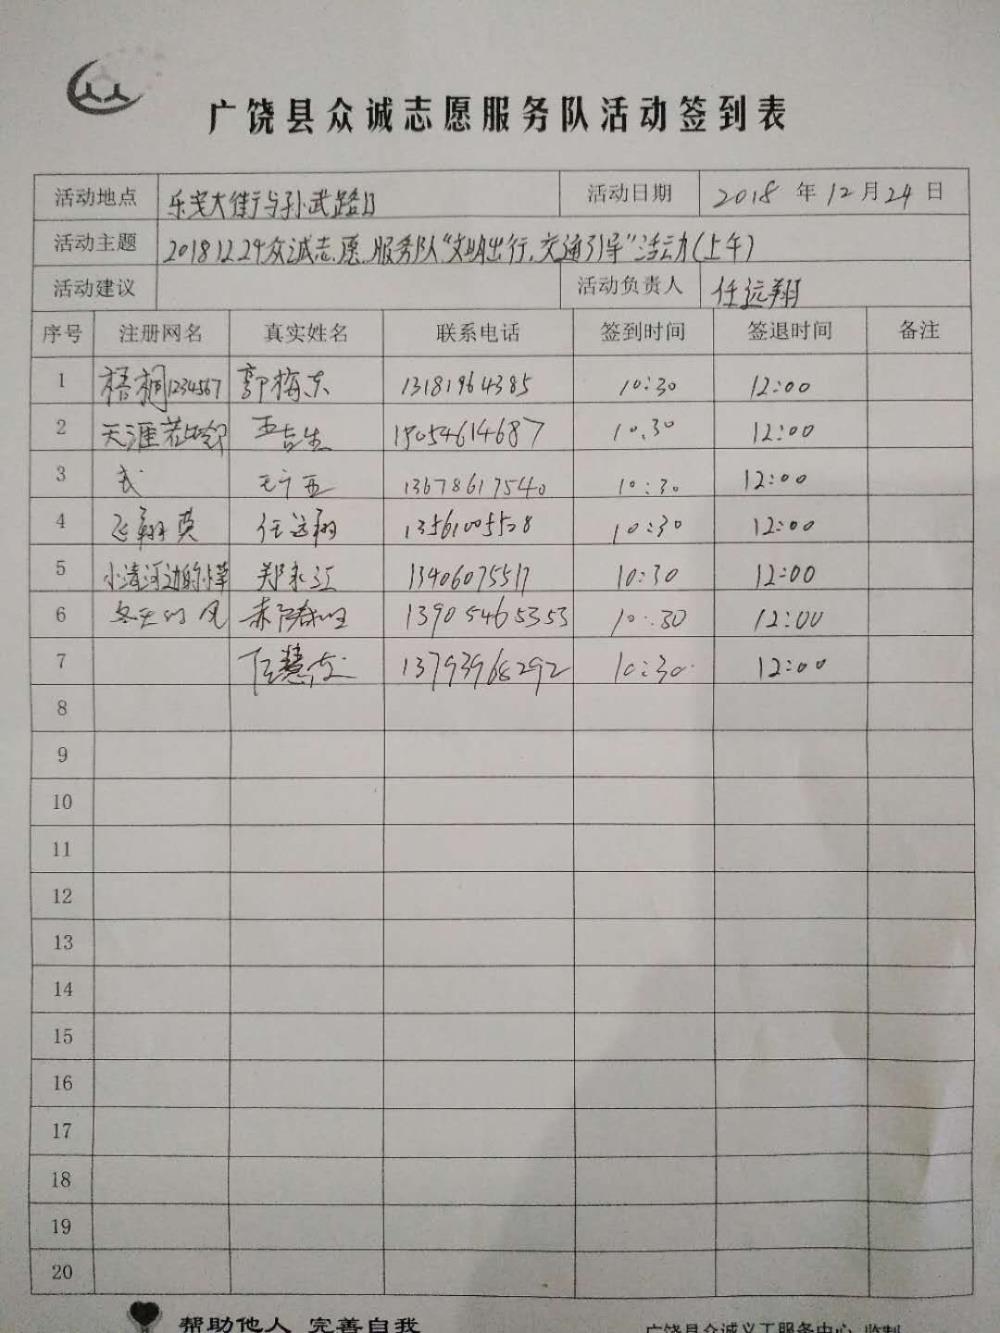 广饶县众诚志愿服务队活动签到表
活动地点 乐安大街与孙武路口 活动日期 2018 年 12 月 24 日
活动主题 2018.12.24众诚志愿服务队"文明出行,交通引导"活动(上午)
活动建议 活动负责人 任远翔
序号 注册网名 真实姓名 联系电话 签到时间 签退时间 备注
1 梧桐1234567 郭梅东 13181964385 10:30 12:00
2 天涯若比邻 18054614687 10:30 12:00
3 13678617540 10:30 12:00
4 飞翔 任远翔 13561005528 10:30 12:00
5 小清河边的小草 郑永江 13406075517 10:30 12:00
6 冬天的风 13905465353 10:30 12:00
7 任慧 13793968292 10:30 12:00
8
9
10
11
12
13
14
15
16
17
18
19
20
帮助他人 完善自我
广饶县众诚义工服务中心 监制